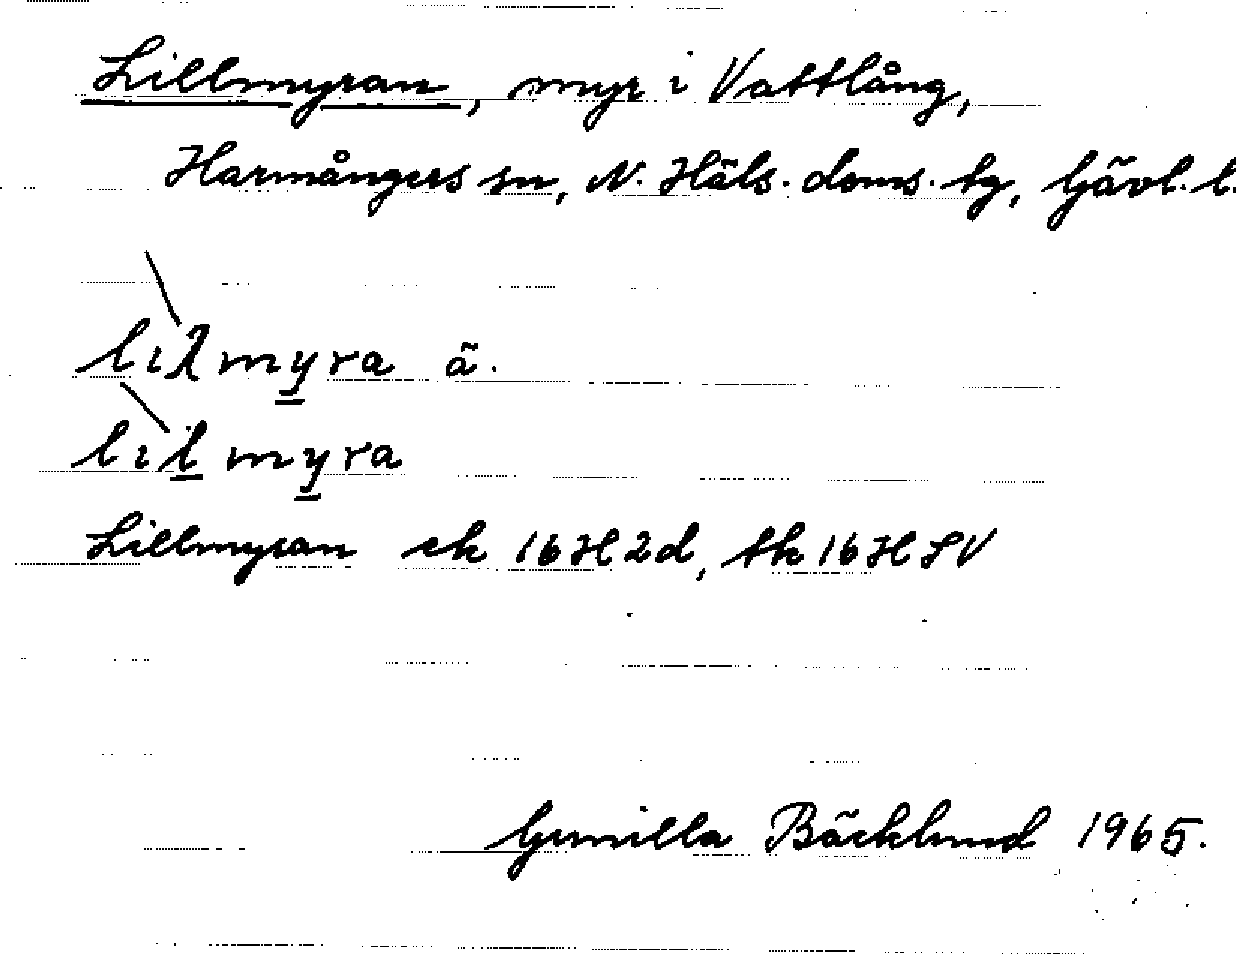 Lillmyran, myr i Vattlång,
Harmångers sn, N. Häls. doms. tg, Gävl. l.
lilmyra ä.
lilmyra
Lillmyran ek 16H2d, tk 16HSV
Gunilla Bäcklund 1965.